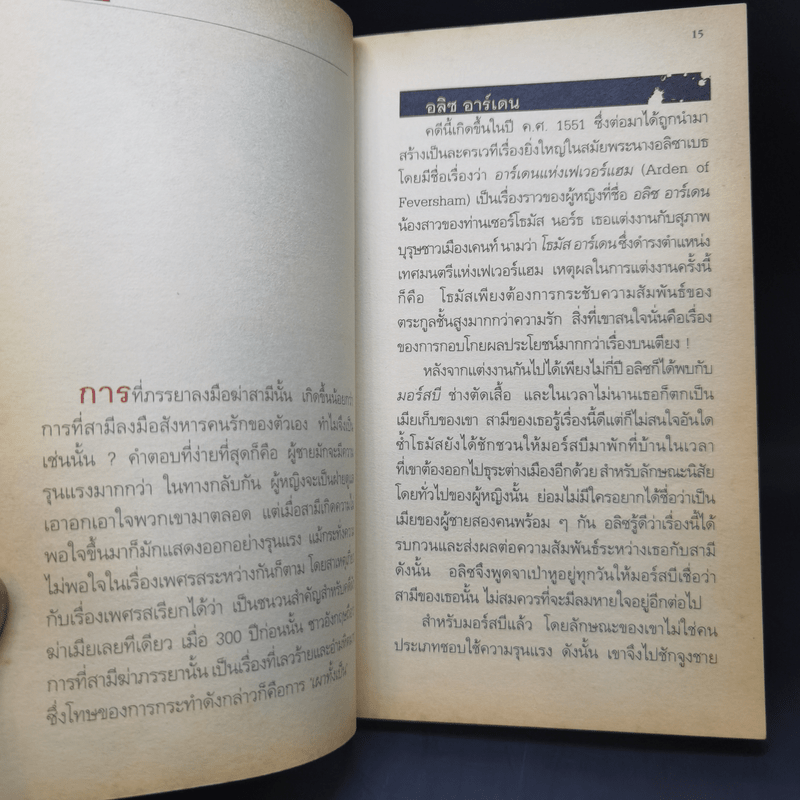 การที่ภรรยาลงมือฆ่าสามีนั้น เกิดขึ้นน้อยกว่า
การที่สามีลงมือสังหารคนรักของตัวเอง ทำไมจึงเป็น
เช่นนั้น ? คำตอบที่ง่ายที่สุดก็คือ ผู้ชายมักจะมีความ
รุนแรงมากกว่า ในทางกลับกัน ผู้หญิงจะเป็นฝ่าย
เอาอกเอาใจพวกเขามาตลอด แต่เมื่อสามีเกิดความไม่
พอใจขึ้นมาก็มักแสดงออกอย่างรุนแรง แม้กระทั่งความ
ไม่พอใจในเรื่องเพศรสระหว่างกันก็ตาม โดยสาเหตุ
กับเรื่องเพศรสเรียกได้ว่า เป็นชนวนสำคัญสำหรับ
ฆ่าเมียเลยทีเดียว เมื่อ 300 ปีก่อนนั้น ชาวอังกฤษ
การที่สามีฆ่าภรรยานั้น เป็นเรื่องที่เลวร้ายและ
ซึ่งโทษของการกระทำดังกล่าวก็คือการ 'เผาทั้งเป็น'
15
อลิซ อาร์เดน
คดีนี้เกิดขึ้นในปี ค.ศ. 1551 ซึ่งต่อมาได้ถูกนำมา
สร้างเป็นละครเวทีเรื่องยิ่งใหญ่ในสมัยพระนางอลิซาเบธ
โดยมีชื่อเรื่องว่า อาร์เดนแห่งเฟเวอร์แฮม (Arden of
Feversham) เป็นเรื่องราวของผู้หญิงที่ชื่อ อลิซ อาร์เดน
น้องสาวของท่านเซอร์โธมัส นอร์ธ เธอแต่งงานกับสุภาพ
บุรุษชาวเมืองเคนท์ นามว่า โธมัส อาร์เดน ซึ่งดำรงตำแหน่ง
เทศมนตรีแห่งเฟเวอร์แฮม เหตุผลในการแต่งงานครั้งนี้
ก็คือ โธมัสเพียงต้องการกระชับความสัมพันธ์ของ
ตระกูลชั้นสูงมากกว่าความรัก สิ่งที่เขาสนใจนั่นคือเรื่อง
ของการกอบโกยผลประโยชน์มากกว่าเรื่องบนเตียง !
หลังจากแต่งงานกันไปได้เพียงไม่กี่ปี อลิซก็ได้พบกับ
มอร์สบี ช่างตัดเสื้อ และในเวลาไม่นานเธอก็ตกเป็น
เมียเก็บของเขา สามีของเธอรู้เรื่องนี้ดีแต่ก็ไม่สนใจอันใด
ซ้ำโธมัสยังได้ชักชวนให้มอร์สบีมาพักที่บ้านในเวลา
ที่เขาต้องออกไปธุระต่างเมืองอีกด้วย สำหรับลักษณะนิสัย
โดยทั่วไปของผู้หญิงนั้น ย่อมไม่มีใครอยากได้ชื่อว่าเป็น
เมียของผู้ชายสองคนพร้อม ๆ กัน อลิซรู้ดีว่าเรื่องนี้ได้
รบกวนและส่งผลต่อความสัมพันธ์ระหว่างเธอกับสามี
ดังนั้น อลิซจึงพูดจาเป่าหูอยู่ทุกวันให้มอร์สบีเชื่อว่า
สามีของเธอนั้น ไม่สมควรที่จะมีลมหายใจอยู่อีกต่อไป
สำหรับมอร์สบีแล้ว โดยลักษณะของเขาไม่ใช่คน
ประเภทชอบใช้ความรุนแรง ดังนั้น เขาจึงไปชักจูงชาย